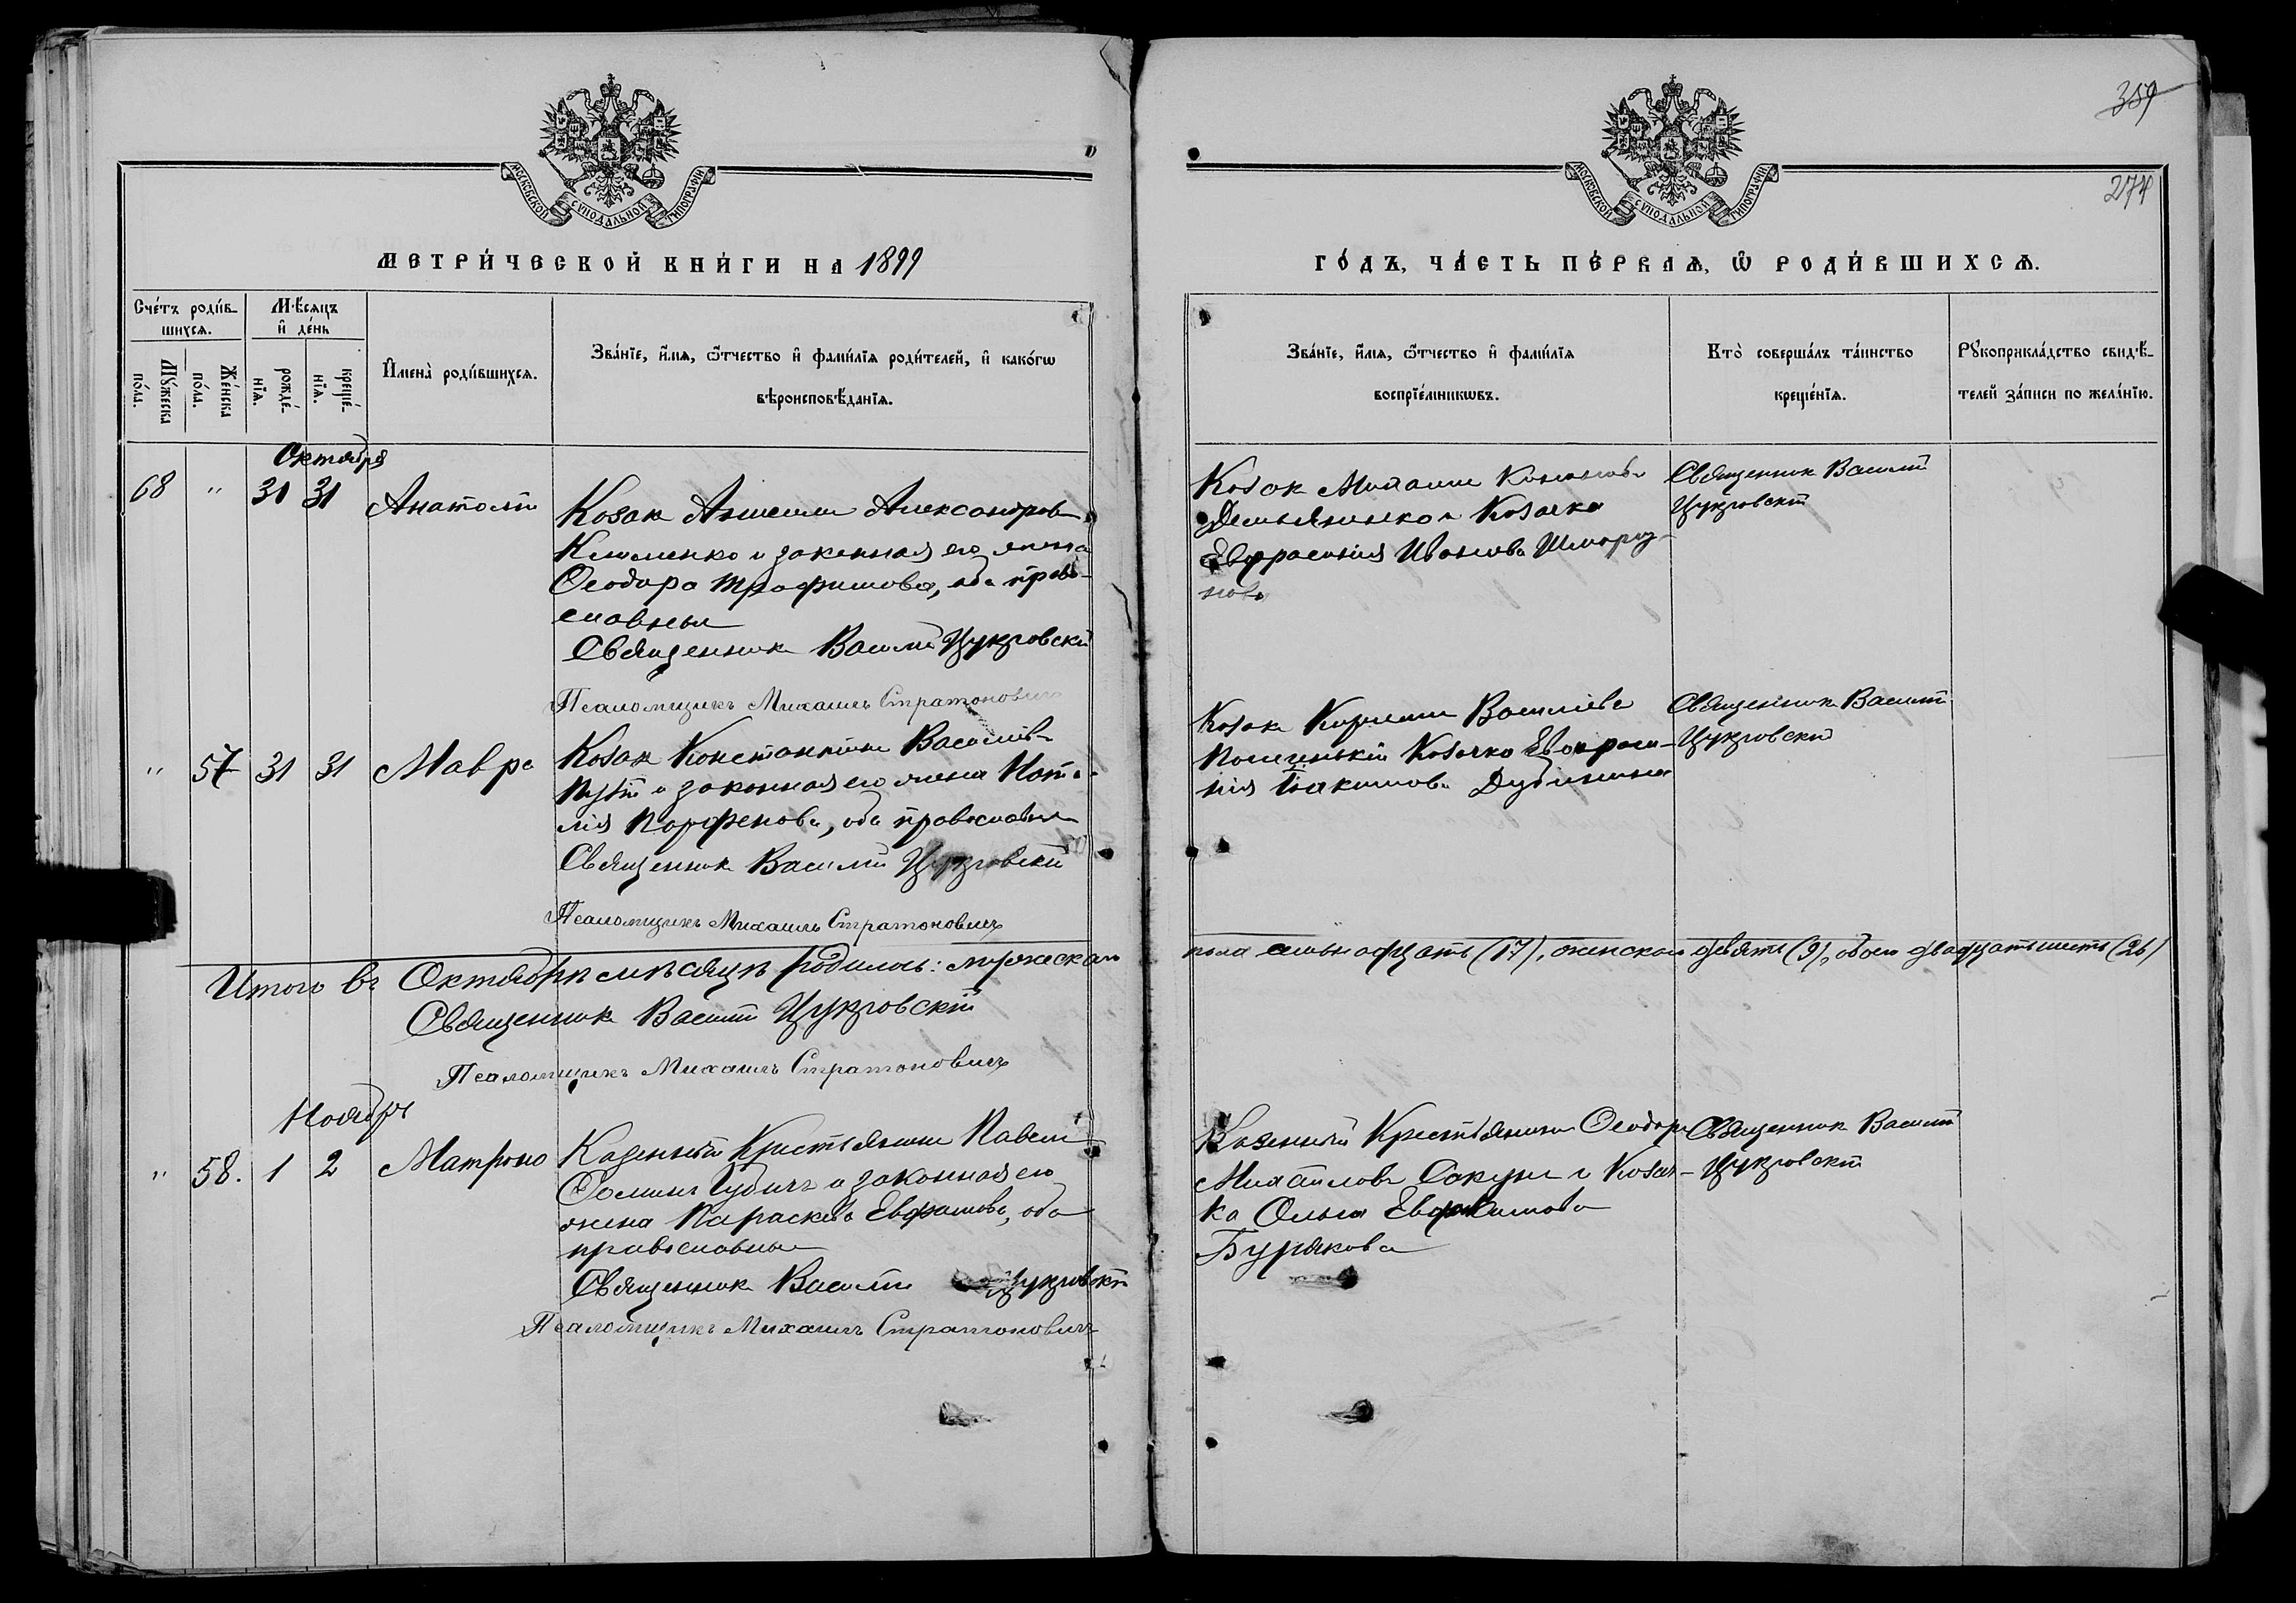 359
274
МОСКОВСКОЙ СѴНОДАЛЬНОЙ ТИПОГРАФІИ
МОСКОВСКОЙ СѴНОДАЛЬНОЙ ТИПОГРАФІИ
МЕТРИ́ЧЕСКОЙ КНИ́ГИ НА 1899
ГО́ДЪ, ЧА́СТЬ ПЕ́РВАѦ, Ѡ҆ РОДИ́ВШИХСѦ.
Сче́тъ роди́в-
шихсѧ.
Мѣ́сѧцъ
и҆ де́нь
Мꙋ́жеска
по́ла.
Же́нска
по́ла.
рожде́-
нїѧ.
креще́-
нїѧ.
И҆мена̀ роди́вшихсѧ.
Зва́нїе, и҆́мѧ, ѻ҆́тчество и҆ фами́лїѧ роди́телей, и҆ како́гѡ
вѣроисповѣ́данїѧ.
Зва́нїе, и҆́мѧ, ѻ҆́тчество и҆ фами́лїѧ
воспрїе́мникѡвъ.
Кто̀ соверша́лъ та́инство
креще́нїѧ.
Рꙋкоприкла́дство свидѣ́-
телей за́писи по жела́нїю.
Октября
68 " 31 31 Анатолій
Козакъ Александров
Клименко и законная его жена
Ѳеодора Трофимова, оба право-
славныя
Священникъ Василій Цукровскій
Псаломщикъ Михаилъ Стратоновичъ
Козакъ Михаилъ
Демьяненко и Козачка
Евфросинія Иванова
нова
Священникъ Василій
Цукровскій
" 57 31 31 Мавра
Козакъ Константинъ Василіев
и законная его жена Ната-
лія Парфенова, оба православныя
Священникъ Василій Цукровскій
Псаломщикъ Михаилъ Стратоновичъ
Козакъ Кириллъ Василіевъ
Козачка Евфроси-
нія Іоакимова Дубинина
Священникъ Василій
Цукровскій
Итого въ Октябрѣ мѣсяцѣ родилось: мужескаго
пола семьнадцать (17), женскаго девять (9), обоего двадцать шесть (26)
Священникъ Василій Цукровскій
Псаломщикъ Михаилъ Стратоновичъ
Ноябрь
" 58. 1 2 Матрона
Казенный Крестьянинъ Павелъ
Ѳоминъ Губичъ и законная его
жена Параскева Евфимова, оба
православныя
Священникъ Василій Цукровскій
Псаломщикъ Михаилъ Стратоновичъ
Казенный Крестьянинъ Ѳеодоръ
Михайловъ Сакунъ и Козач-
ка Ольга Евфимова
Бурякова
Священникъ Василій
Цукровскій